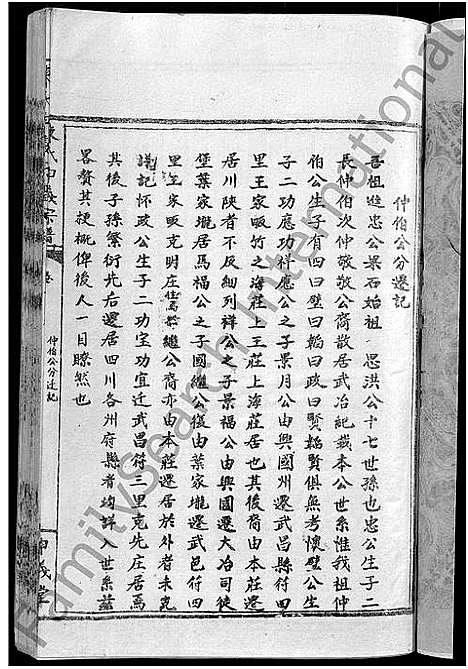 仲伯公分遷記
吾祖遊忠公杲石始祖 思洪公十七世孫也忠公生子二
長仲伯次仲敬敬公裔散居武冶紀載本公世系惟我祖仲
伯公生子有四曰璧曰韜曰政曰賢韜賢俱無考懷璧公生
子二功應功祥應公之子景月公由興國州遷武昌縣符四
里王家畈竹之海莊上王莊上海莊居也其後裔由本莊遷
居川陝者不及細列祥公之子景福公由興國遷大冶司徒
堡葉家壠居焉福公之子國繼公復由葉家壠遷武邑符四
里王家畈克明庄住焉 繼公裔亦由本莊遷居於外者未克
謄記懷政公生子二功宝功宜迁武昌符三里克先庄居焉
其後子孫繁衍先右遷居四川各州府縣者均詳入世系茲
畧贅其梗槪俾後人一目瞭然也
陳氏 義宗譜
卷
仲伯公分迁記
義堂
FamilySearch International